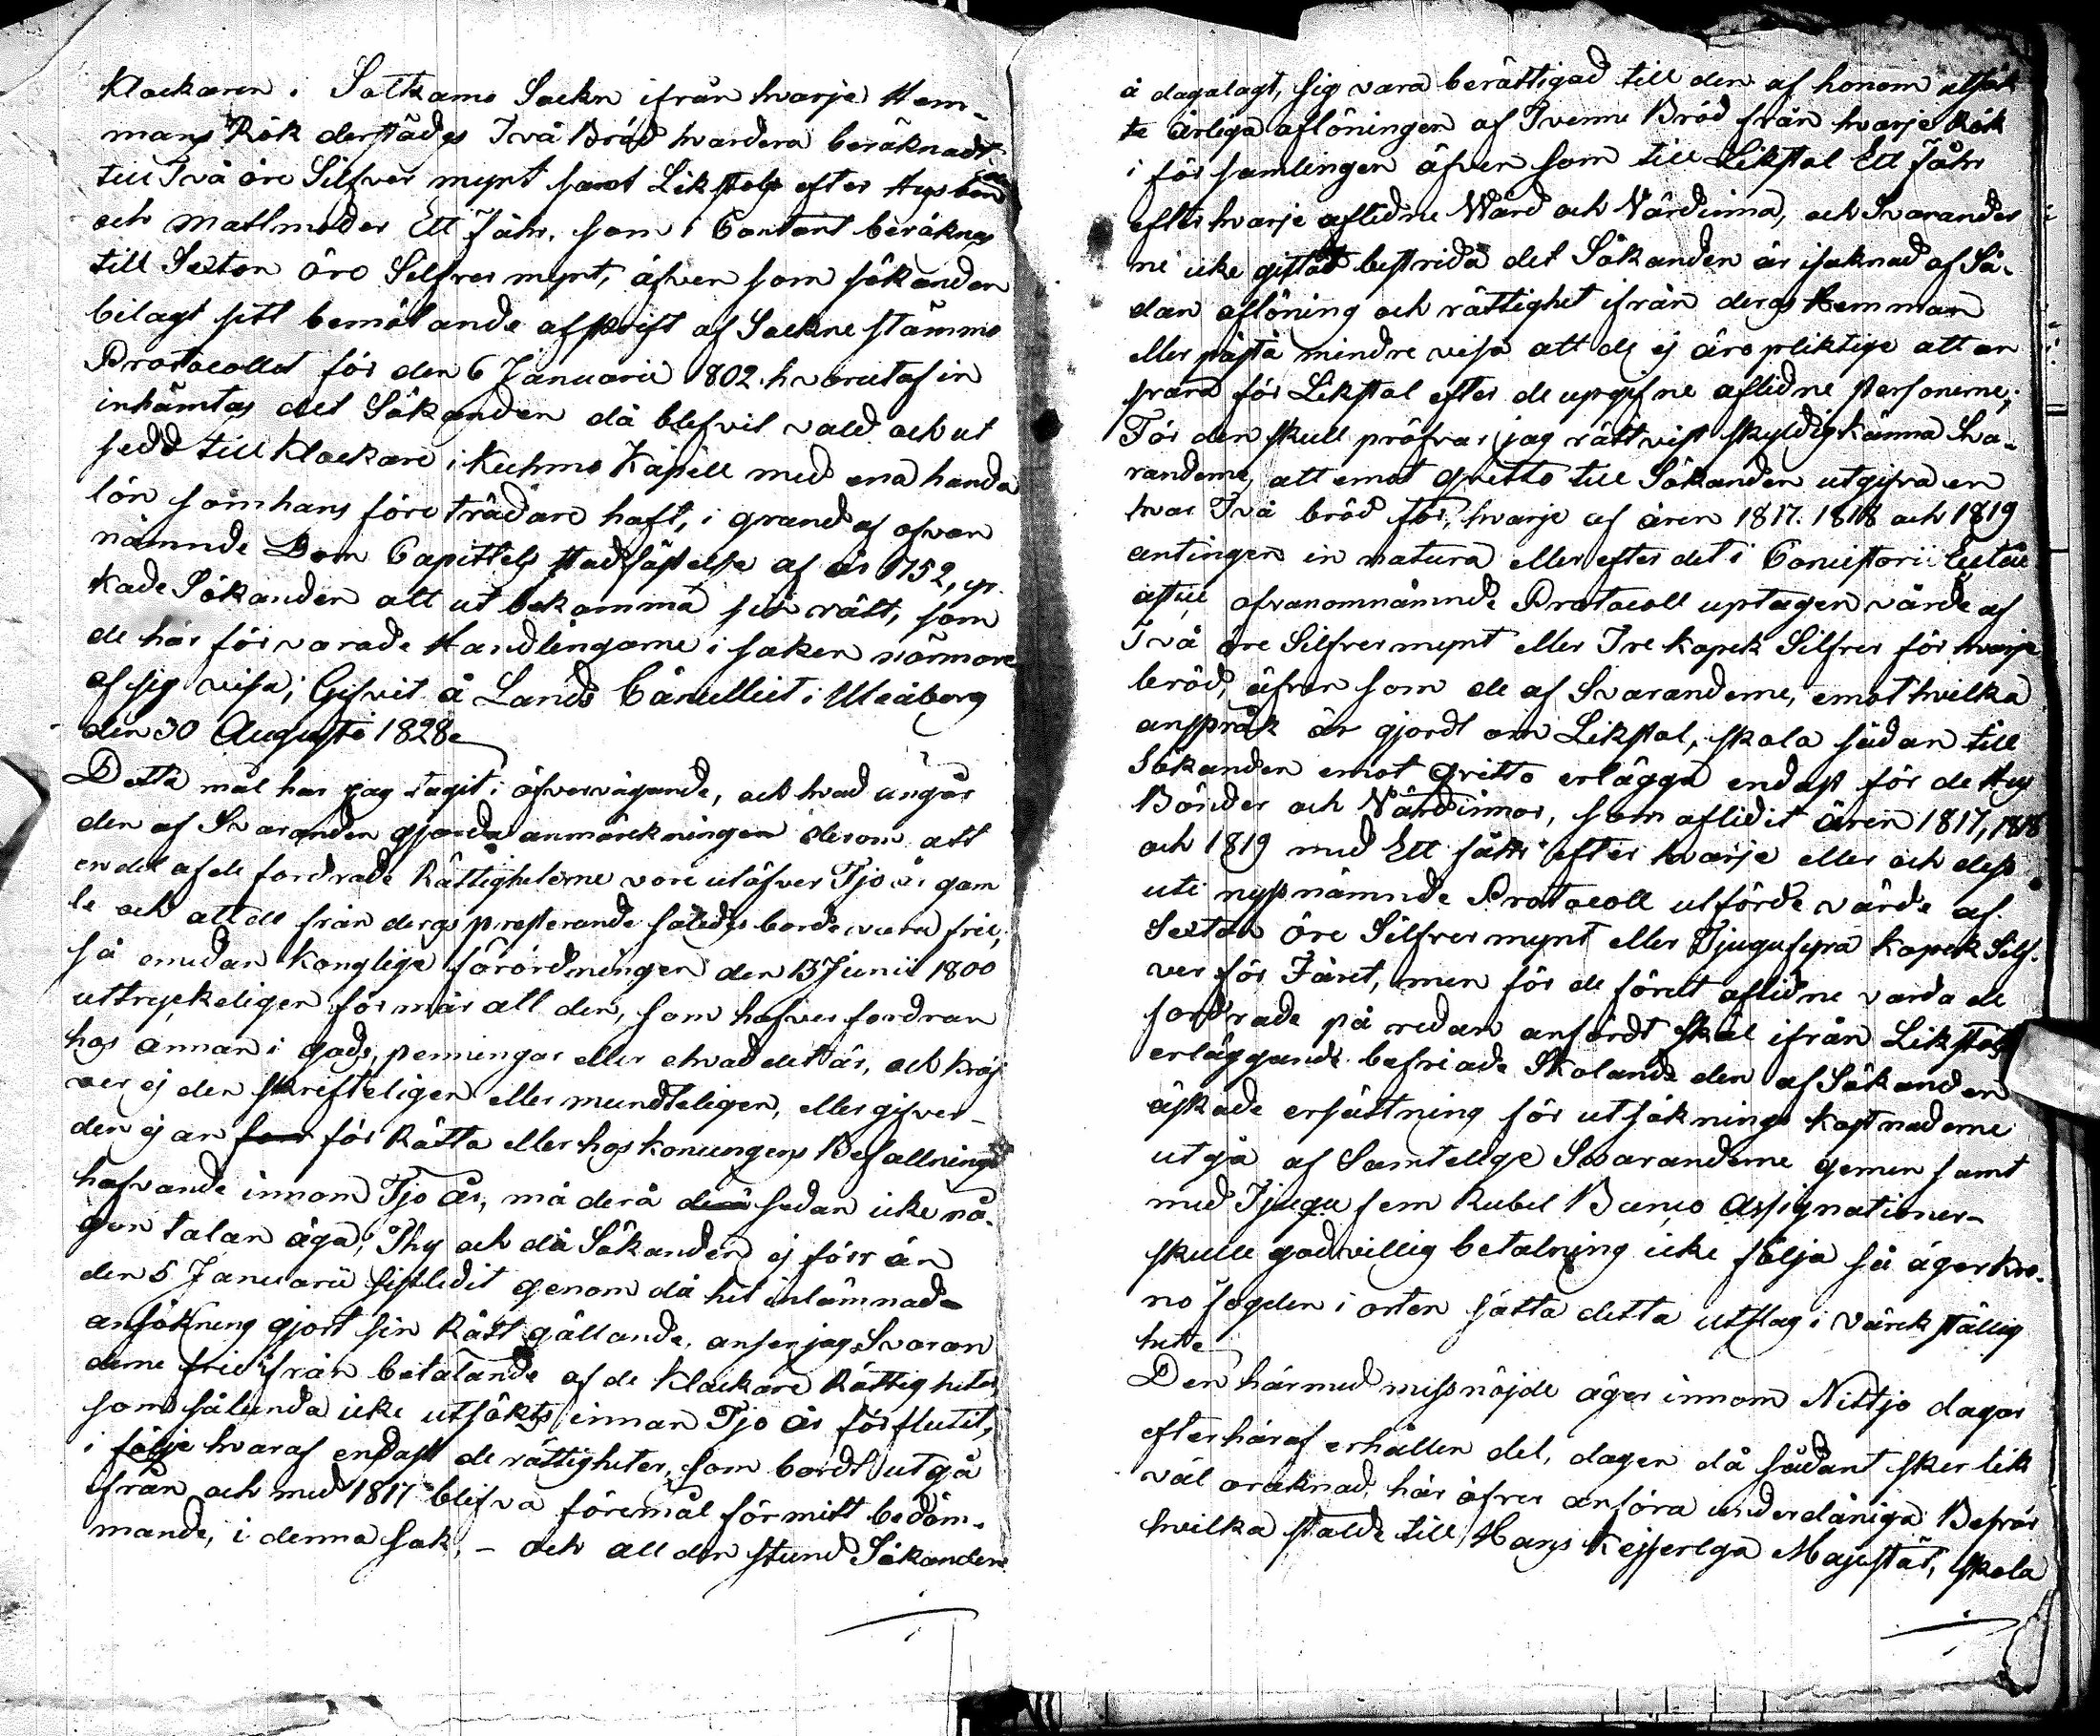 Klockaren i Sotkamo Sockn ifrån hvarje Hem-
mans Rök derstädes Två Bröd hvardera beräknadt
till Två öre Silfver mynt samt Likstols efter Husbon
och Matmoder Ett Fåhr, som i Contant beräknas
till Sexton öre Silfver mynt, äfven som sökanden
bilagt sitt bemälande afskrift af Sockne stämmo
Protocollet för den 6 Januarii 1802. hvarutaf in
inhämtas det Sökanden då blifvit vald och ut
sedd till Klockare i Kuhmo Kapell med ena handa
lön som hans före trädare haft, i grund af ofvan
nämnde Dom Capittels stadfästelse af år 1752, yr.
kade Sökanden att ut bekomma sin rätt, som
de här förvarade Handlingarne i saken närmare
af sig visa; Gifvit å Lands Cancelliet i Uleåborg
den 30 Augusti 1828.
Detta mål har jag tagit i öfvervägande, och hvad angår
den af Svaranden gjorda anmärckningen derom att
en del af de fordrade Rättigheterne vore utöfver Tjo år gam
le och att de från deras presterande således borde vara frie,
så emedan Konglige förordningen den 13 Junii 1800
uttryckeligen förmår att den, som hafver fordran
hos annan i gods, penningar eller ehvad det är, och kräf
ver ej den skrifteligen eller mundteligen, eller gifver
den ej an för Rätta eller hos konungens Befallnings
hafvande innom Tjo år, må derå sedan icke nå-
gon talan äga; Thy och då Sökanden ej förr än
den 5 Januarii sistledit genom då hit inlämnade
ansökning gjort sin Rätt gällande, anser jag Svaran
derne frie ifrån betalande af de Klockare Rättigheter,
som sålunda icke utsökts innan Tjo år förflutit,
i följe hvaraf endast de rättigheter, som bordt utgå
ifrån och med 1817 blifva föremål för mitt bedöm-
mande, i denna sak, - och all den stund Sökanden
å dagalagt, sig vara berättigad till den af honom utsök
te årlega aflöningen af Tvenne Bröd från hvarje Rök
i församlingen äfven som till Likstol Ett Fåhr
efter hvarje aflidne Wärd och Värdinna, och Svarander
ne icke gistat bestrida det Sökanden är isaknad af Så-
dan aflöning och rättighet ifrån deras Hemman
eller påstå mindre visa att de ej äro pliktige att an
svara för Likstol efter de upgifne aflidne personerne;
För den skull pröfvar jag rättvist skyldig känna Sva-
randerne, att emot qvitto till Sökanden utgifva en
hvar Två bröd för hvarje af åren 1817. 1818 och 1819
antingen in natura eller efter det i Concistorii
ofvanomnämnde Protocoll uptagen värde af
Två öre Silfvermynt eller Tre kopek Silfver för hvarje
bröd, äfven som de af Svaranderne, emot hvilka
anspråk är gjordt om Likstol, skola sådan till
Sökanden emot qvitto erlägga endast för de Hus
Bönder och Värdinnor, som aflidit åren 1817, 1818
och 1819 med Ett fåhr efter hvarje eller och dess
uti nyssnämnde Protocoll utförde värde af
Sexton öre Silfver mynt eller Tjugufyra kopek Silf-
ver för Fåret, men för de förut aflidne varda de
fordrade på redan anfördt Skäl ifrån Likstols
erläggande befriade Skolande den af Sökanden
äskade ersättning för utsöknings kostnaderne
utgå af Samtelige Svaranderne gemen samt
med Tjugu fem Rubel Banco Assignationer-
skulle godvillig betalning icke följa så äger kro-
no fogden i orten sätta detta utslag i värck ställig
hette
Den härmed missnöjde äger innom Nittjo dagar
efter häraf erhållen del, dagen då sådant sker lik
väl oräknad, här öfver anföra underdåniga Besvär
hvilka stalde till Hans Kejserlga Majestät, skola